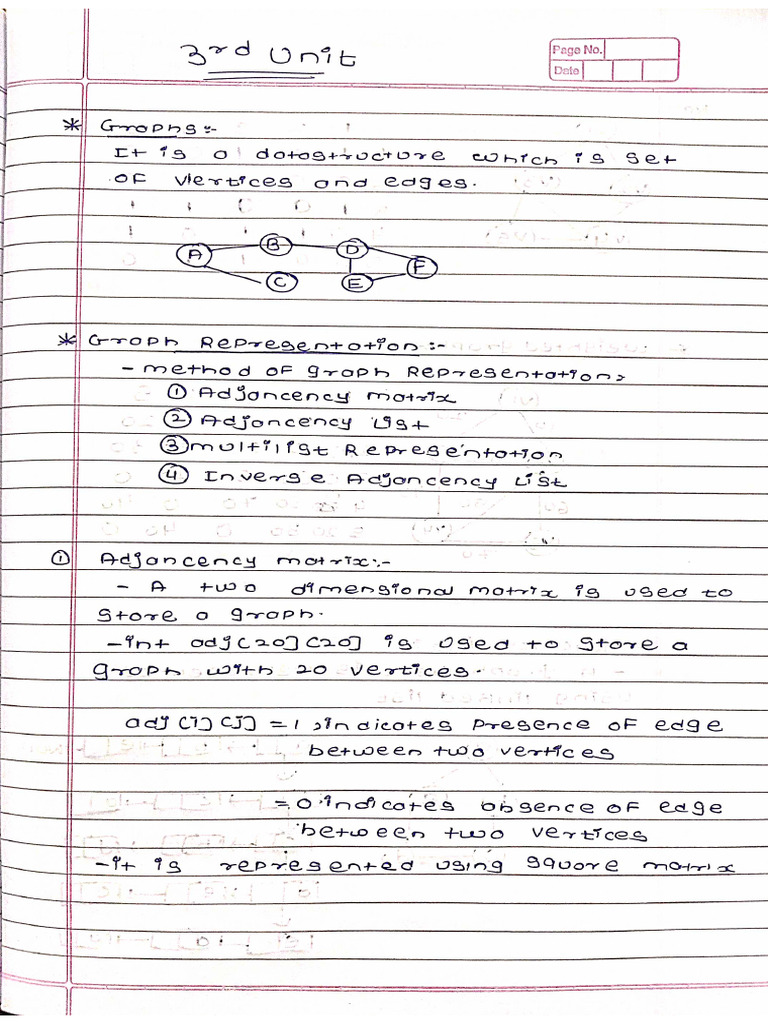 3rd Unit
Page No.
Date
* Graphs:-
It is a datastructure which is set
of vertices and edges.
A B D F
C E
* Graph Representation:-
- method of graph Representation:
① Adjancency matrix
② Adjancency List
③ multilist Representation
④ Inverse Adjancency List
① Adjancency matrix:-
- A two dimensional matrix is used to
store a graph.
- int adj[20][20] is used to store a
graph with 20 vertices.
adj [i] [j] = 1, indicates presence of edge
between two vertices
= 0 indicates absence of edge
between two vertices
- it is represented using square matrix